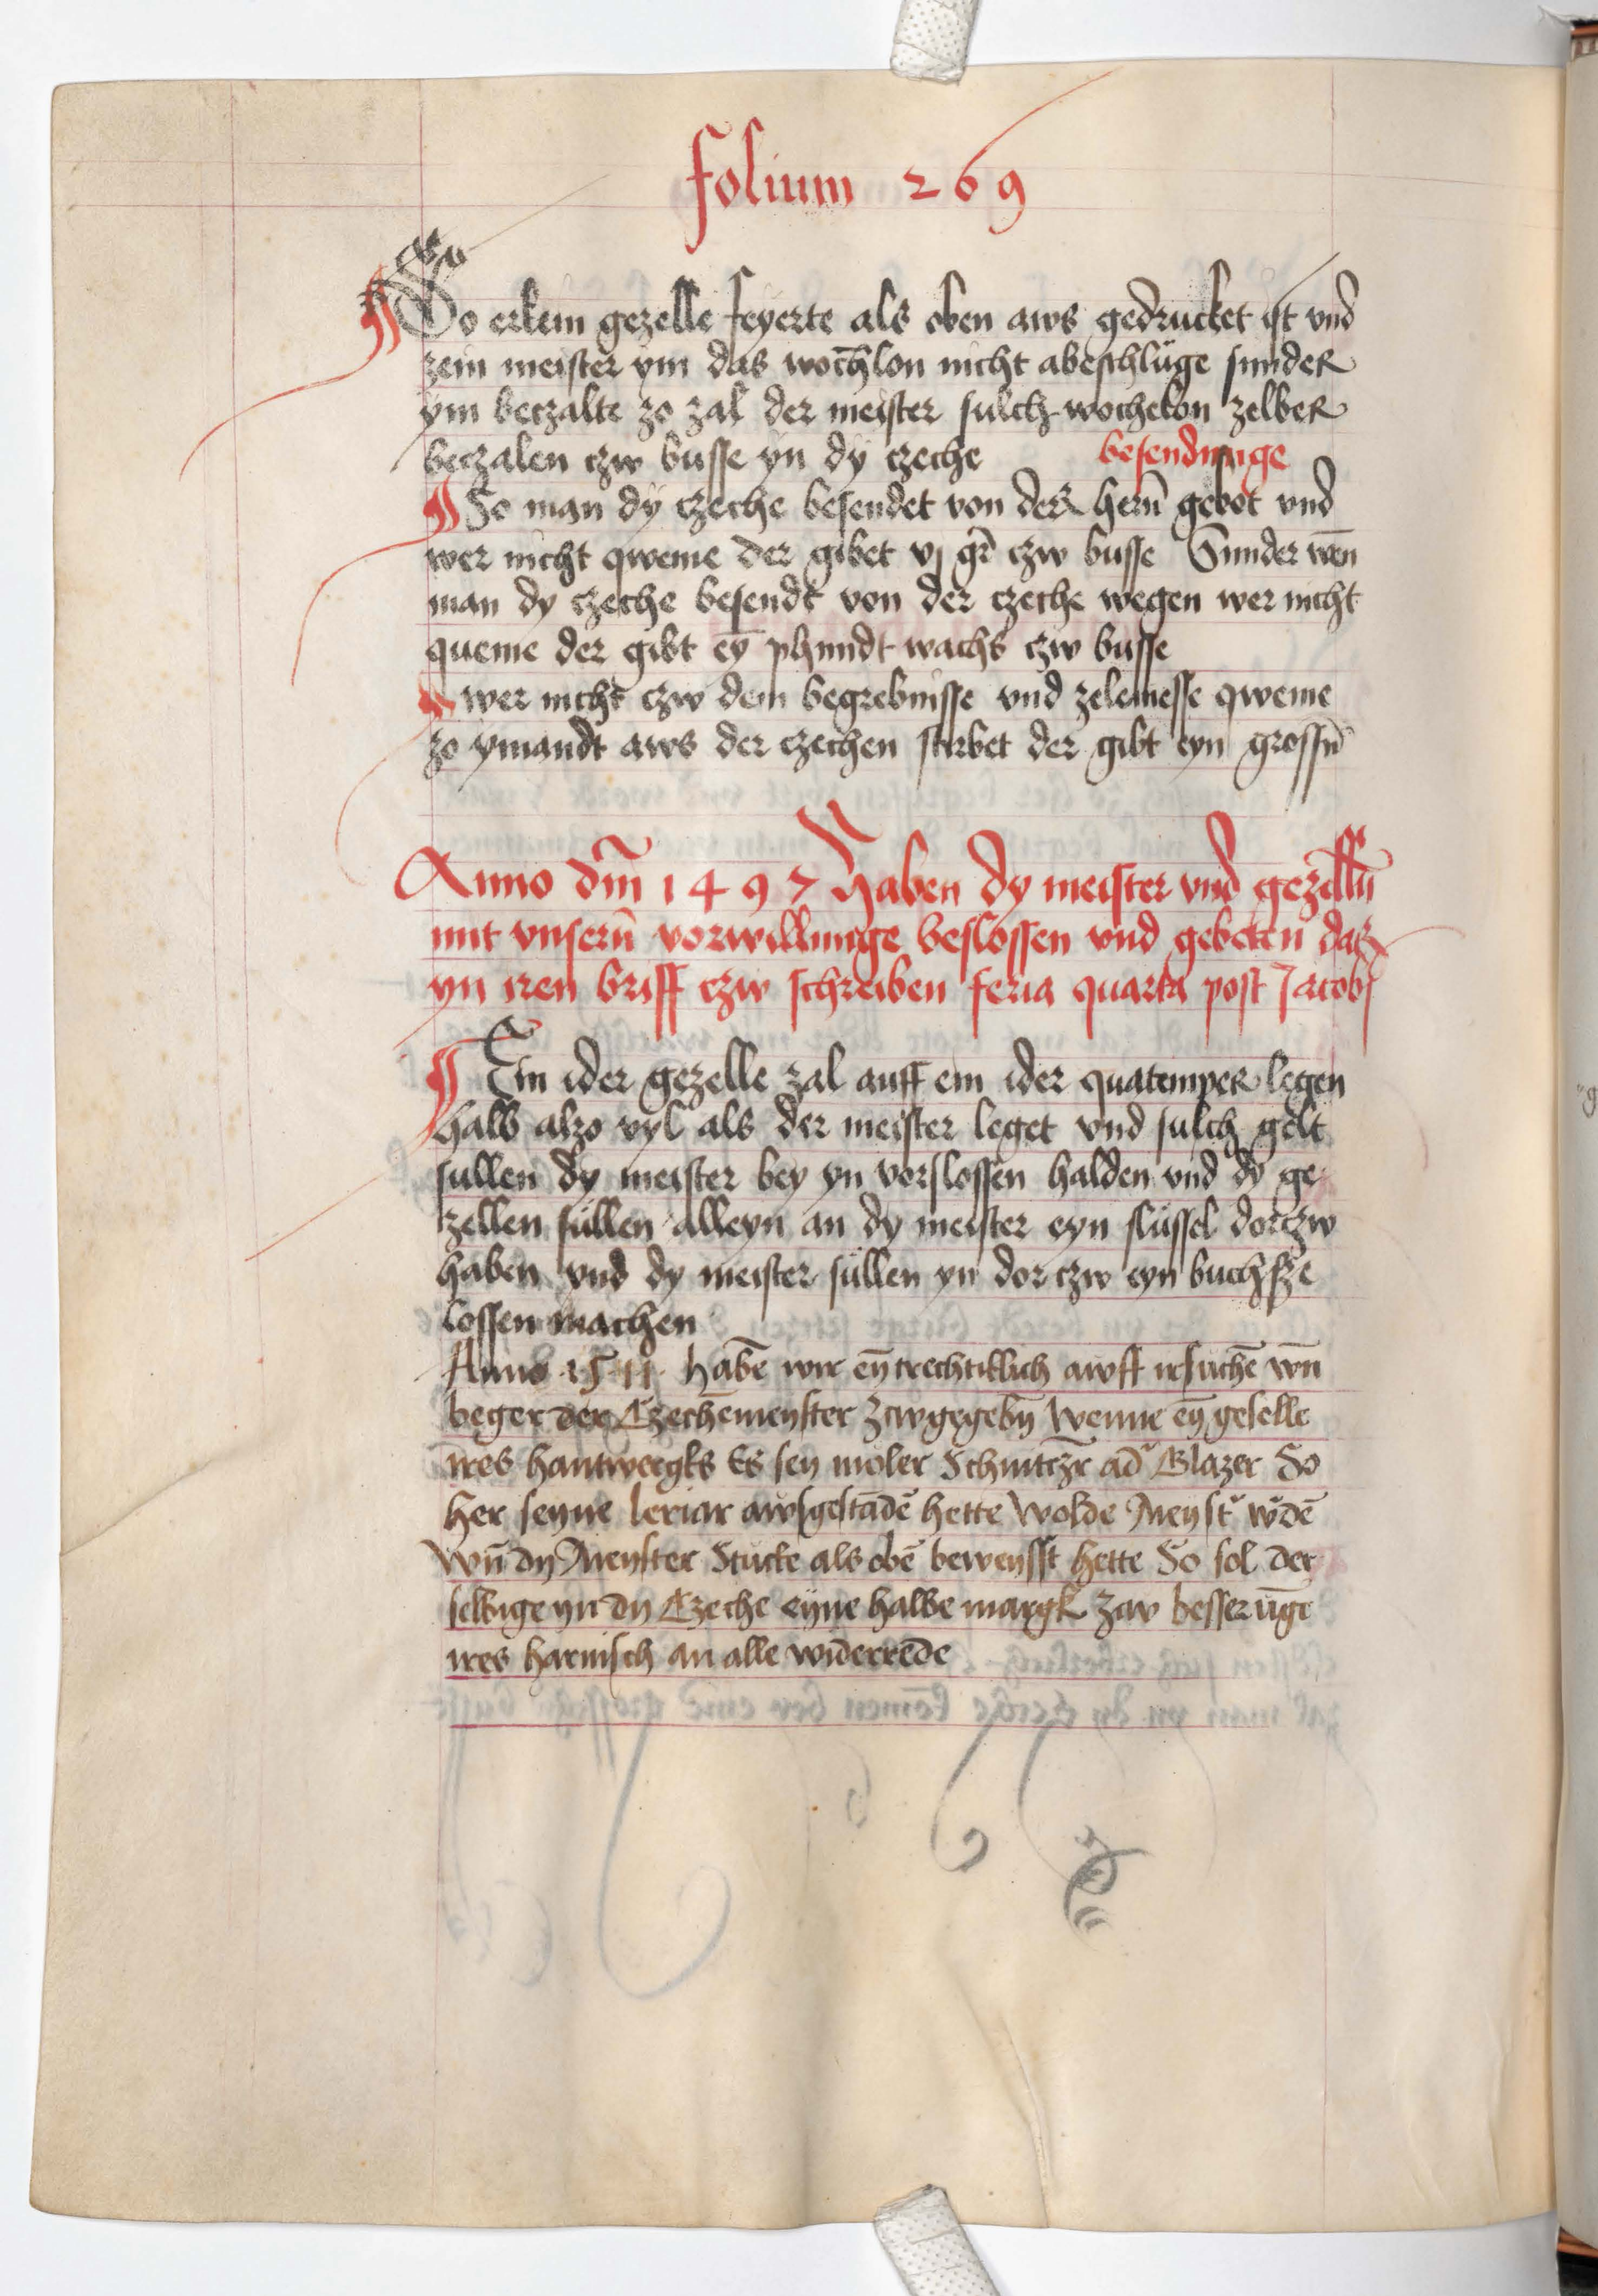 folium 269
So erkein gezelle feyerte als oben aws gedrucket ist vnd
zein meister ym das wochlon nicht abeschlüge sunder
ym beczalte zo zal der meister sulch wochelon zelber
beczalen czw busse yn dy czeche besendunge
So man dy czeche besendet von der hern̄ gebot vnd
wer nicht qweme der gibet vj gr̄ czw busse Sunder wen̄
man dy czeche besendt von der czeche wegen wer nicht
queme der gibt eȳ phundt wachs czw busse
wer nicht czw dem begrebnisse vnd zelemesse qweme
zo ymandt aws der czechen stirbet der gibt eyn grossn̄
Anno dm̄ 1497 haben dy meister vnd gezelln̄
mit vnsern̄ vorwillunge beslossen vnd gebeten das
yn iren briff czw schreiben feria quarta post Jacobj
Ein ider gezelle zal auff ein ider quatemper legen
halb alzo vyl als der meister leget vnd sulch gelt
sullen dy meister bey yn vorslossen halden vnd dy ge
zellen süllen alleyn an dy meister eyn slüssel dorczw
haben vnd dy meister süllen yn dor czw eyn buchsze
lossen machen
Anno 1511 habē wir eȳtrechtiklich awff irsuchē wn̄
beger der Czechēmeyster zcwgegebn̄ Wenne eȳ geselle
ires hantwergks Es sey moler Schnitczr̄ ad̄ Glazer So
her seyne leriar awsgestādē hette Wolde Meyst̄ w̄dē
wn̄ dy Meyster Stucke als obē beweysst hette So sol der
selbige yn dy Czeche eyne halbe margk zcw besserūge
ires harnisch an alle widerrede